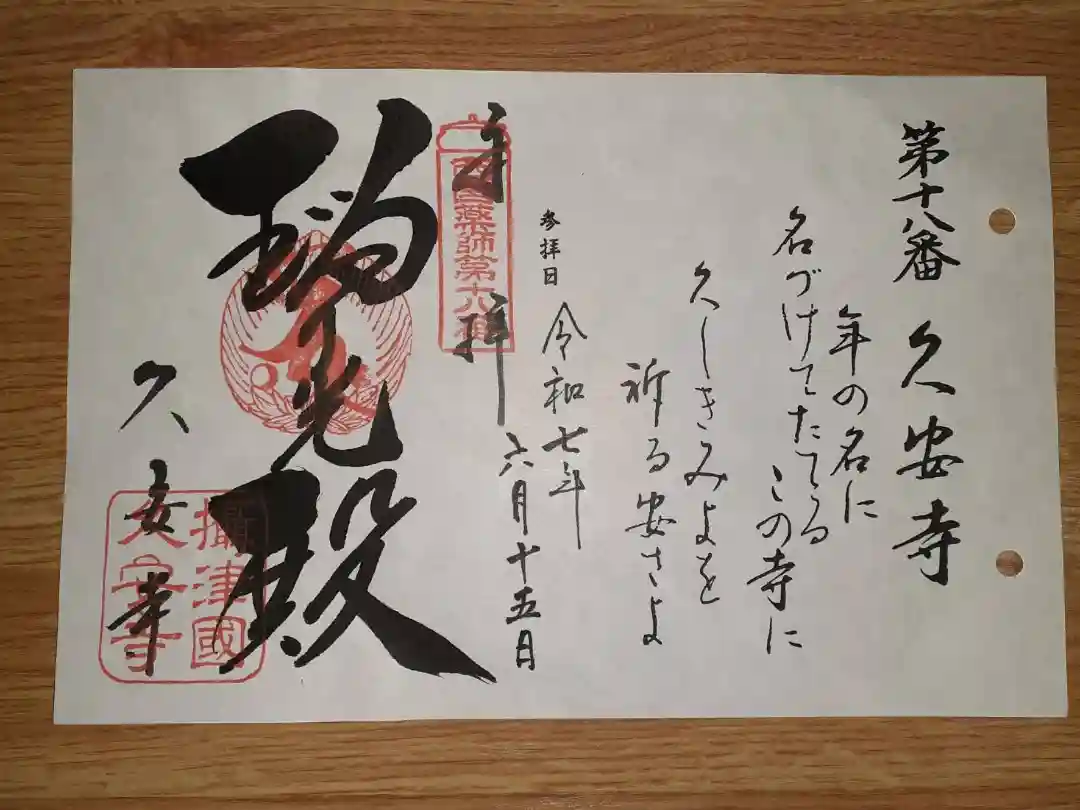 第十八番 久安寺
年の名に
名づけてたてる
この寺に
久しきみよを
祈る安さよ
参拝日 令和七年
六月十五日
奉拝
西国薬師第十八番
瑠璃光殿
久安寺
攝津國
久安寺